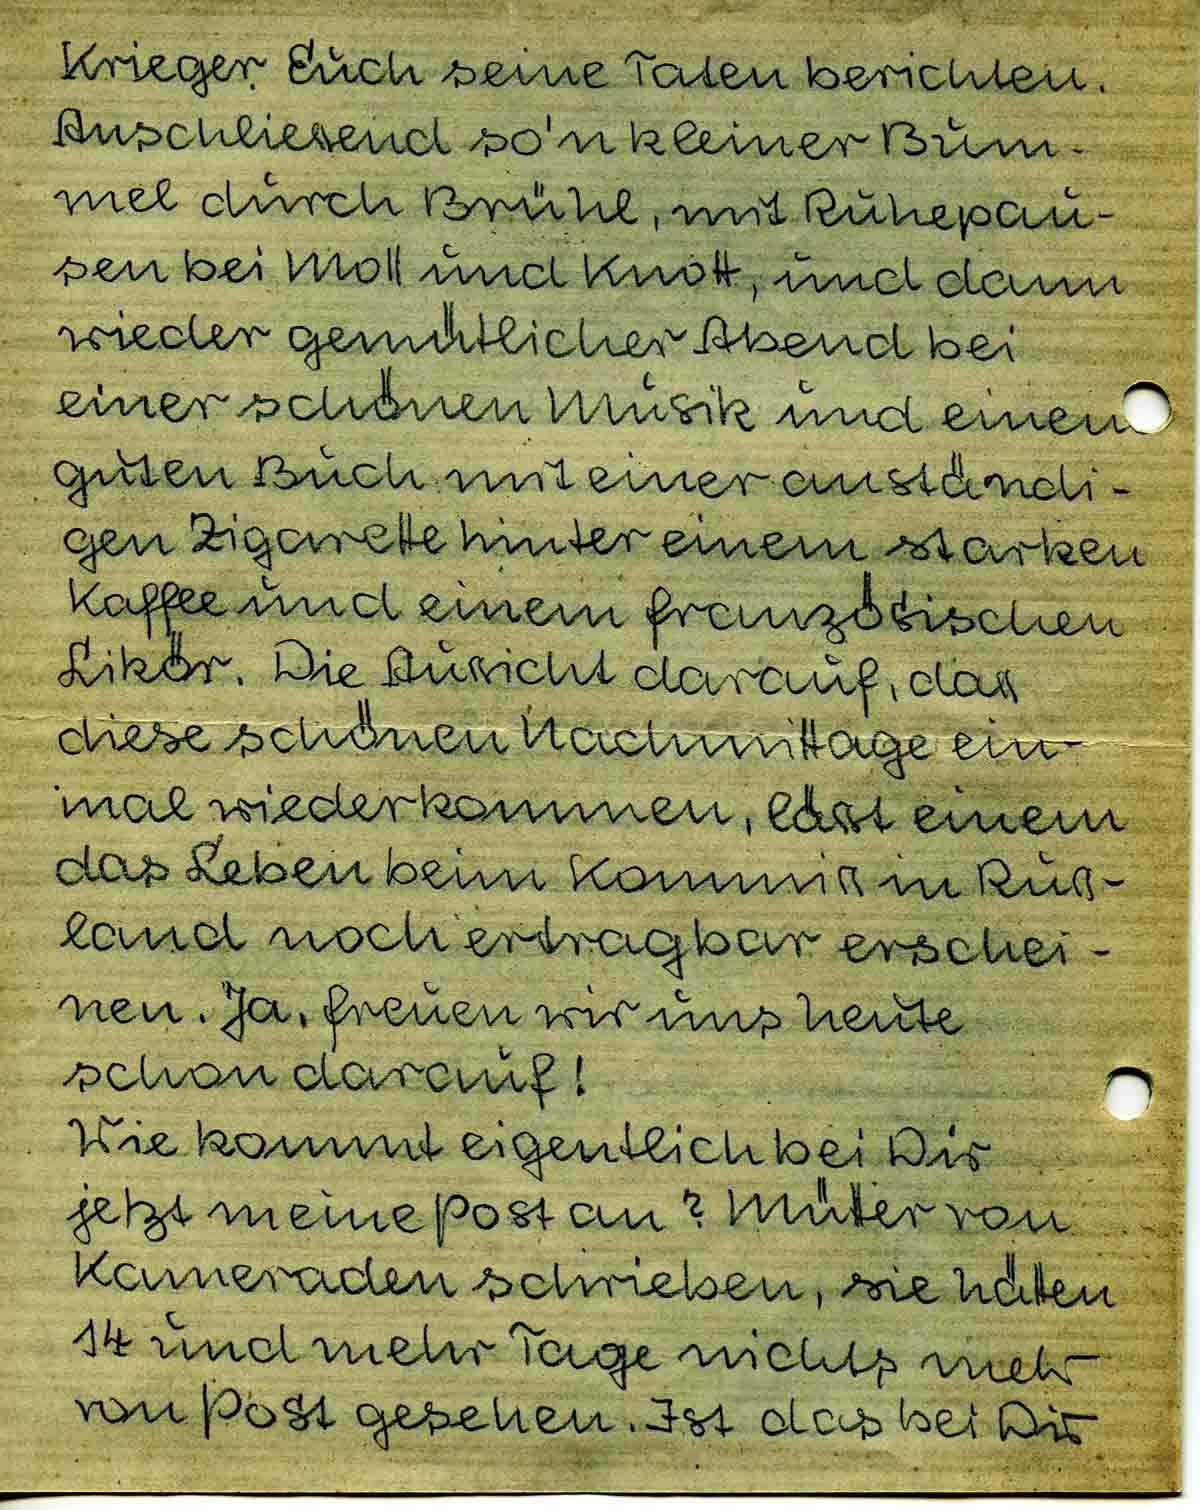 Krieger Euch seine Taten berichten.
Anschliesend so'n kleiner Bum-
mel durch Brühl, mit Ruhepau-
sen bei Moll und Knott, und dann
wieder gemütlicher Abend bei
einer schönen Musik und einen
guten Buch mit einer anständi-
gen Zigarette hinter einem starken
Kaffee und einem französischen
Likör. Die Aussicht darauf, dass
diese schönen Nachmittage ein-
mal wiederkommen, lässt einem
das Leben beim Kommiß in Ruß-
land noch ertragbar erschei-
nen. Ja, freuen wir uns heute
schon darauf!
Wie kommt eigentlich bei Dir
jetzt meine Post an? Mütter von
Kameraden schrieben, sie hätten
14 und mehr Tage nichts mehr
von Post gesehen. Ist das bei Dir